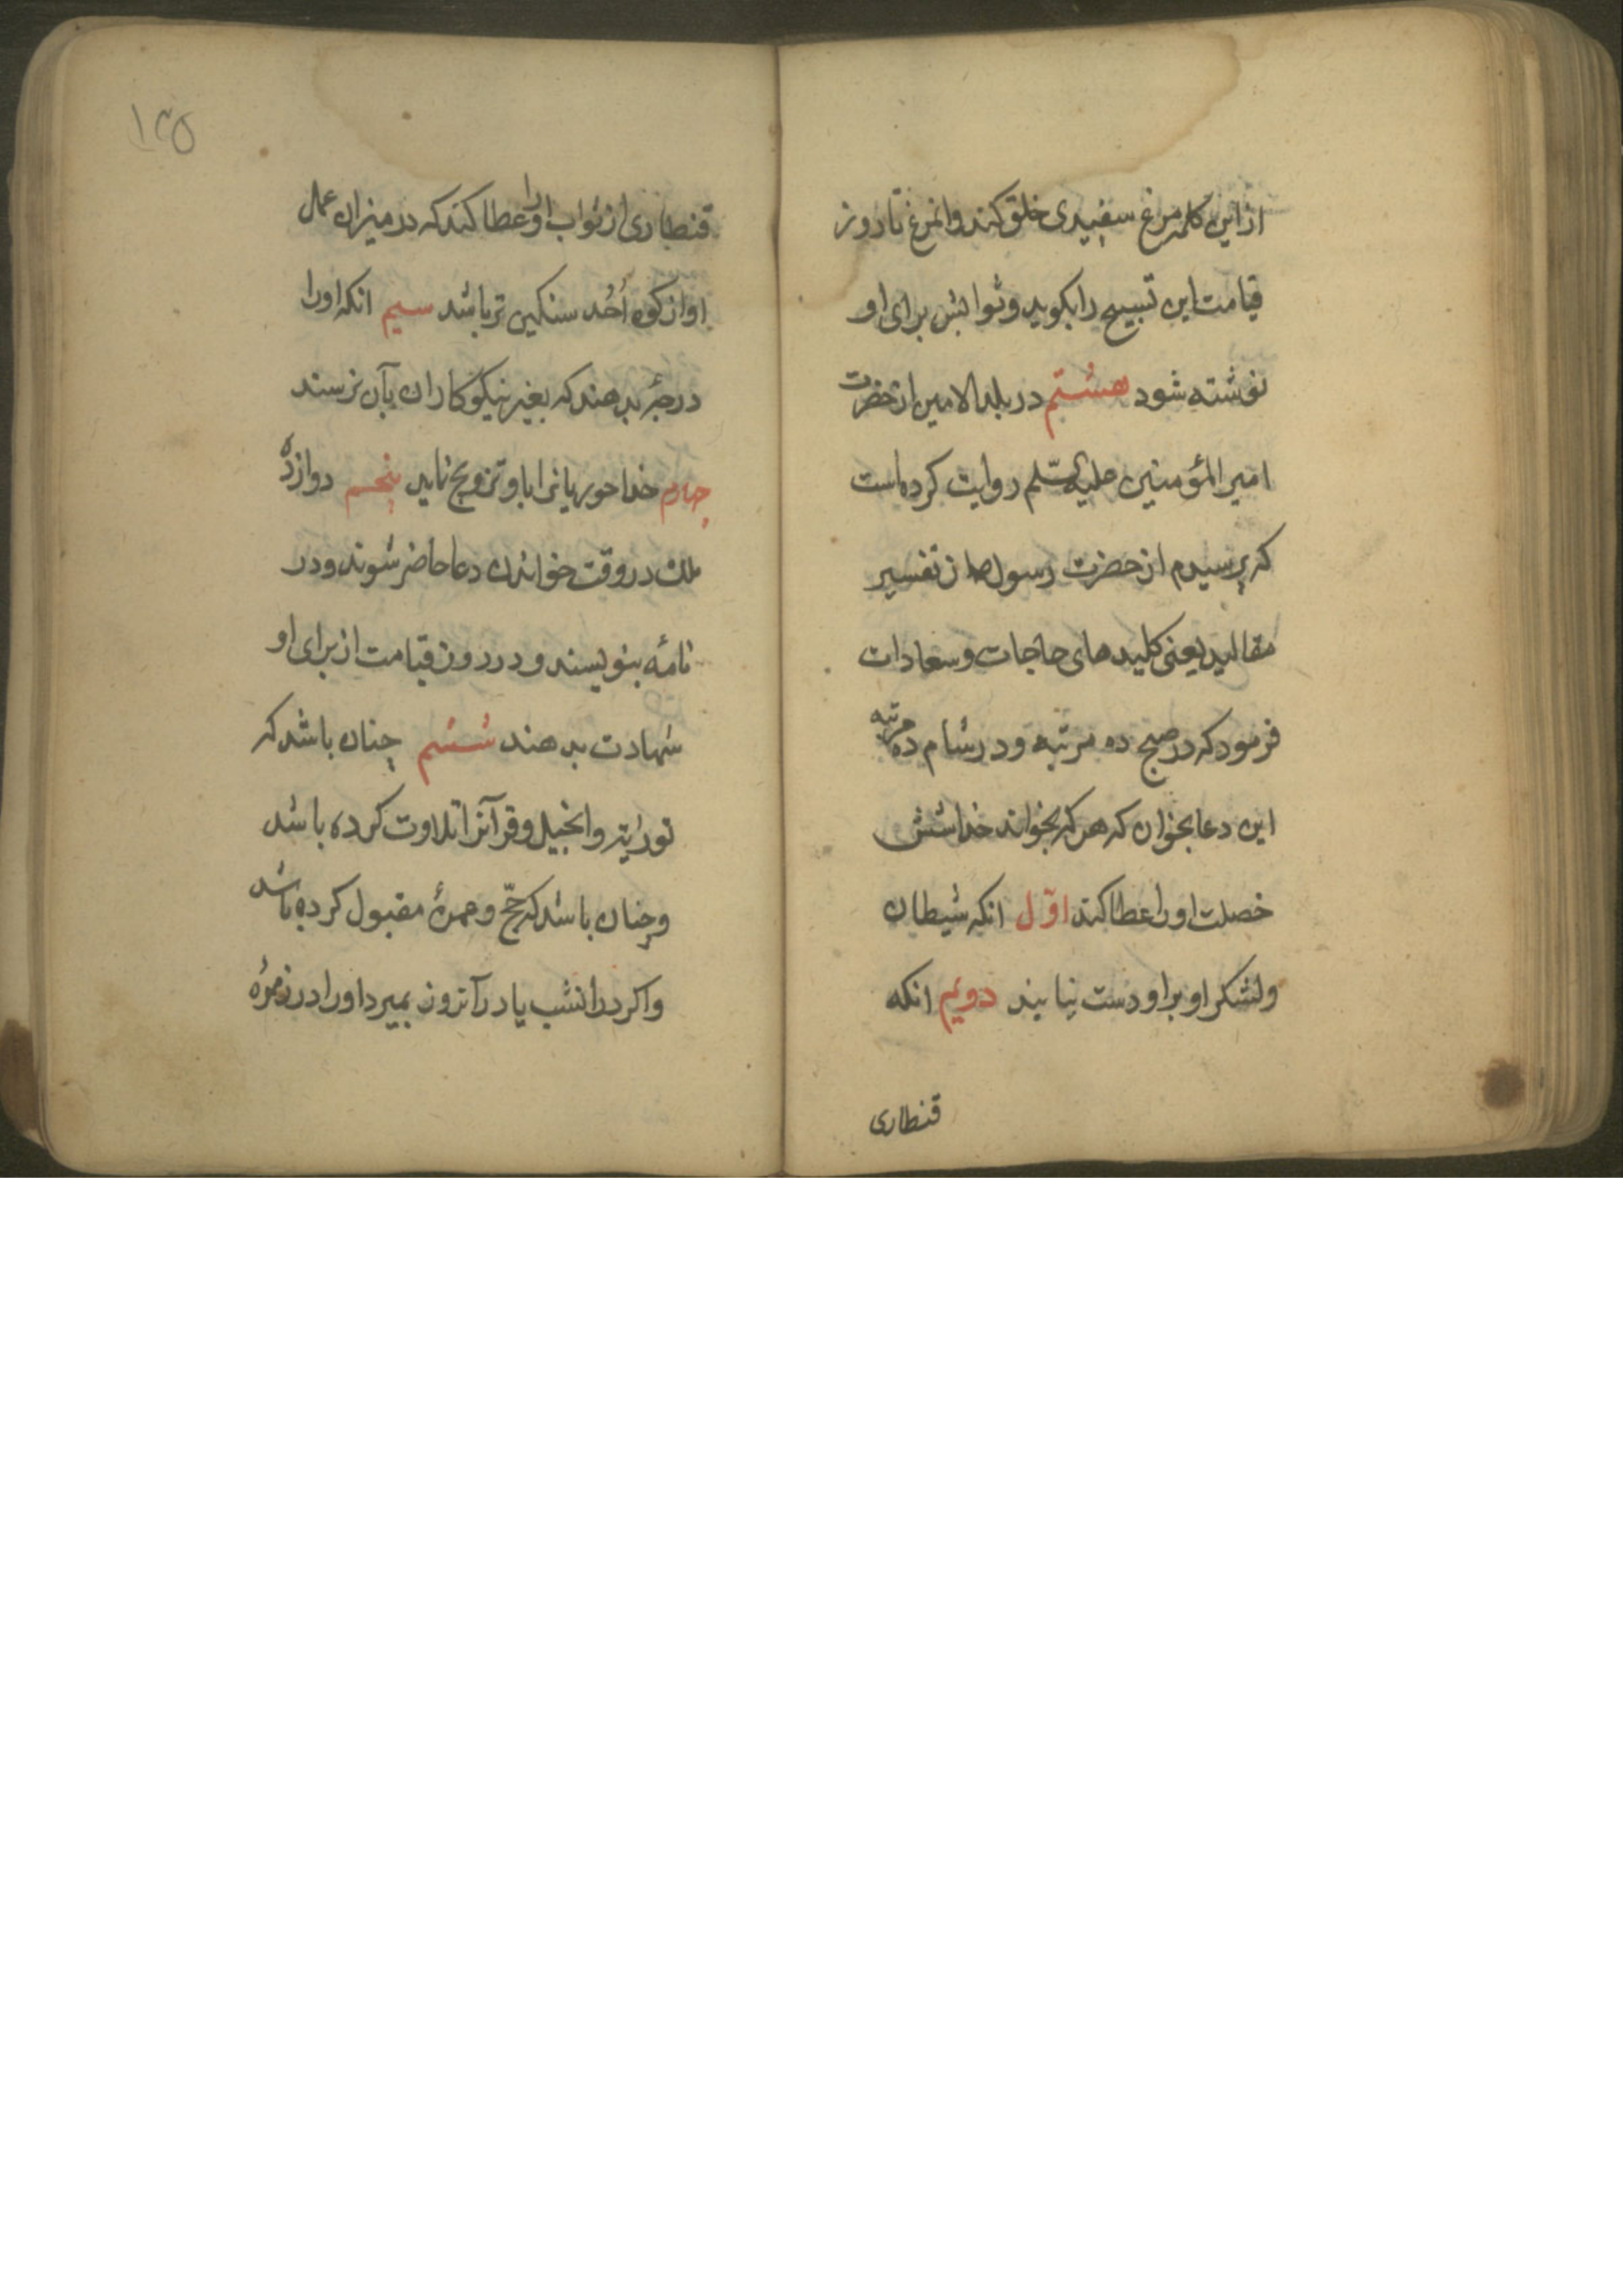 از این کلمه مرغ سفیدی خلق کند وانمرغ تا روز
قیامت این تسبیح را بکوید وثوابش برای او
نوشته شود هشتم در بلد الامین از حضرت
امیر المؤمنین علیه السّلم روایت کرده است
که پرسیدم از حضرت رسول ص از تفسیر
مقالید یعنی کلید های حاجات وسعادات
فرمود که در صبح ده مرتبه ودر شام ده مرتبه
این دعا بخوان که هر که بخواند خدا شش
خصلت اورا عطا کند اوّل انکه شیطان
ولشکر او بر او دست نیابند دویم انکه
قنطاری
۱۳۵
قنطاری از ثواب اورا عطا کند که در میزان عمل
او از کوه اُحُد سنکین تر باشد سیم انکه اورا
درجهٔ بدهند که بغیر نیکوکاران بآن نرسند
چهارم خدا حوریانرا باو تزویج نماید پنجم دوازده
ملک در وقت خواندن دعا حاضر شوند ودر
نامهٔ بنویسند ودر روز قیامت از برای او
شهادت بدهند ششم چنان باشد که
توراة وانجیل وقرآنرا تلاوت کرده باشد
وچنان باشد که حجّ وعمرهٔ مقبول کرده باشد
واکر در انشب یا در آنروز بمیرد اورا در زمرهٔ